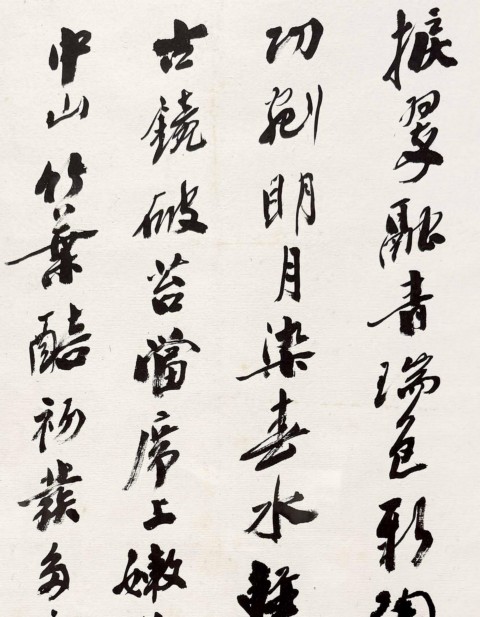 捩翠融青瑞色新陶
功剜明月染春水輕
古鏡破苔當席上嫩
中山竹葉醅初發多